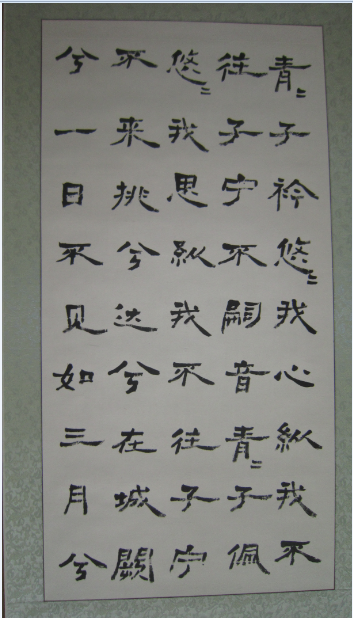 青〻子衿悠〻我心纵我不
往子宁不嗣音青〻子佩
悠〻我思纵我不往子宁
不来挑兮达兮在城闕
兮一日不见如三月兮